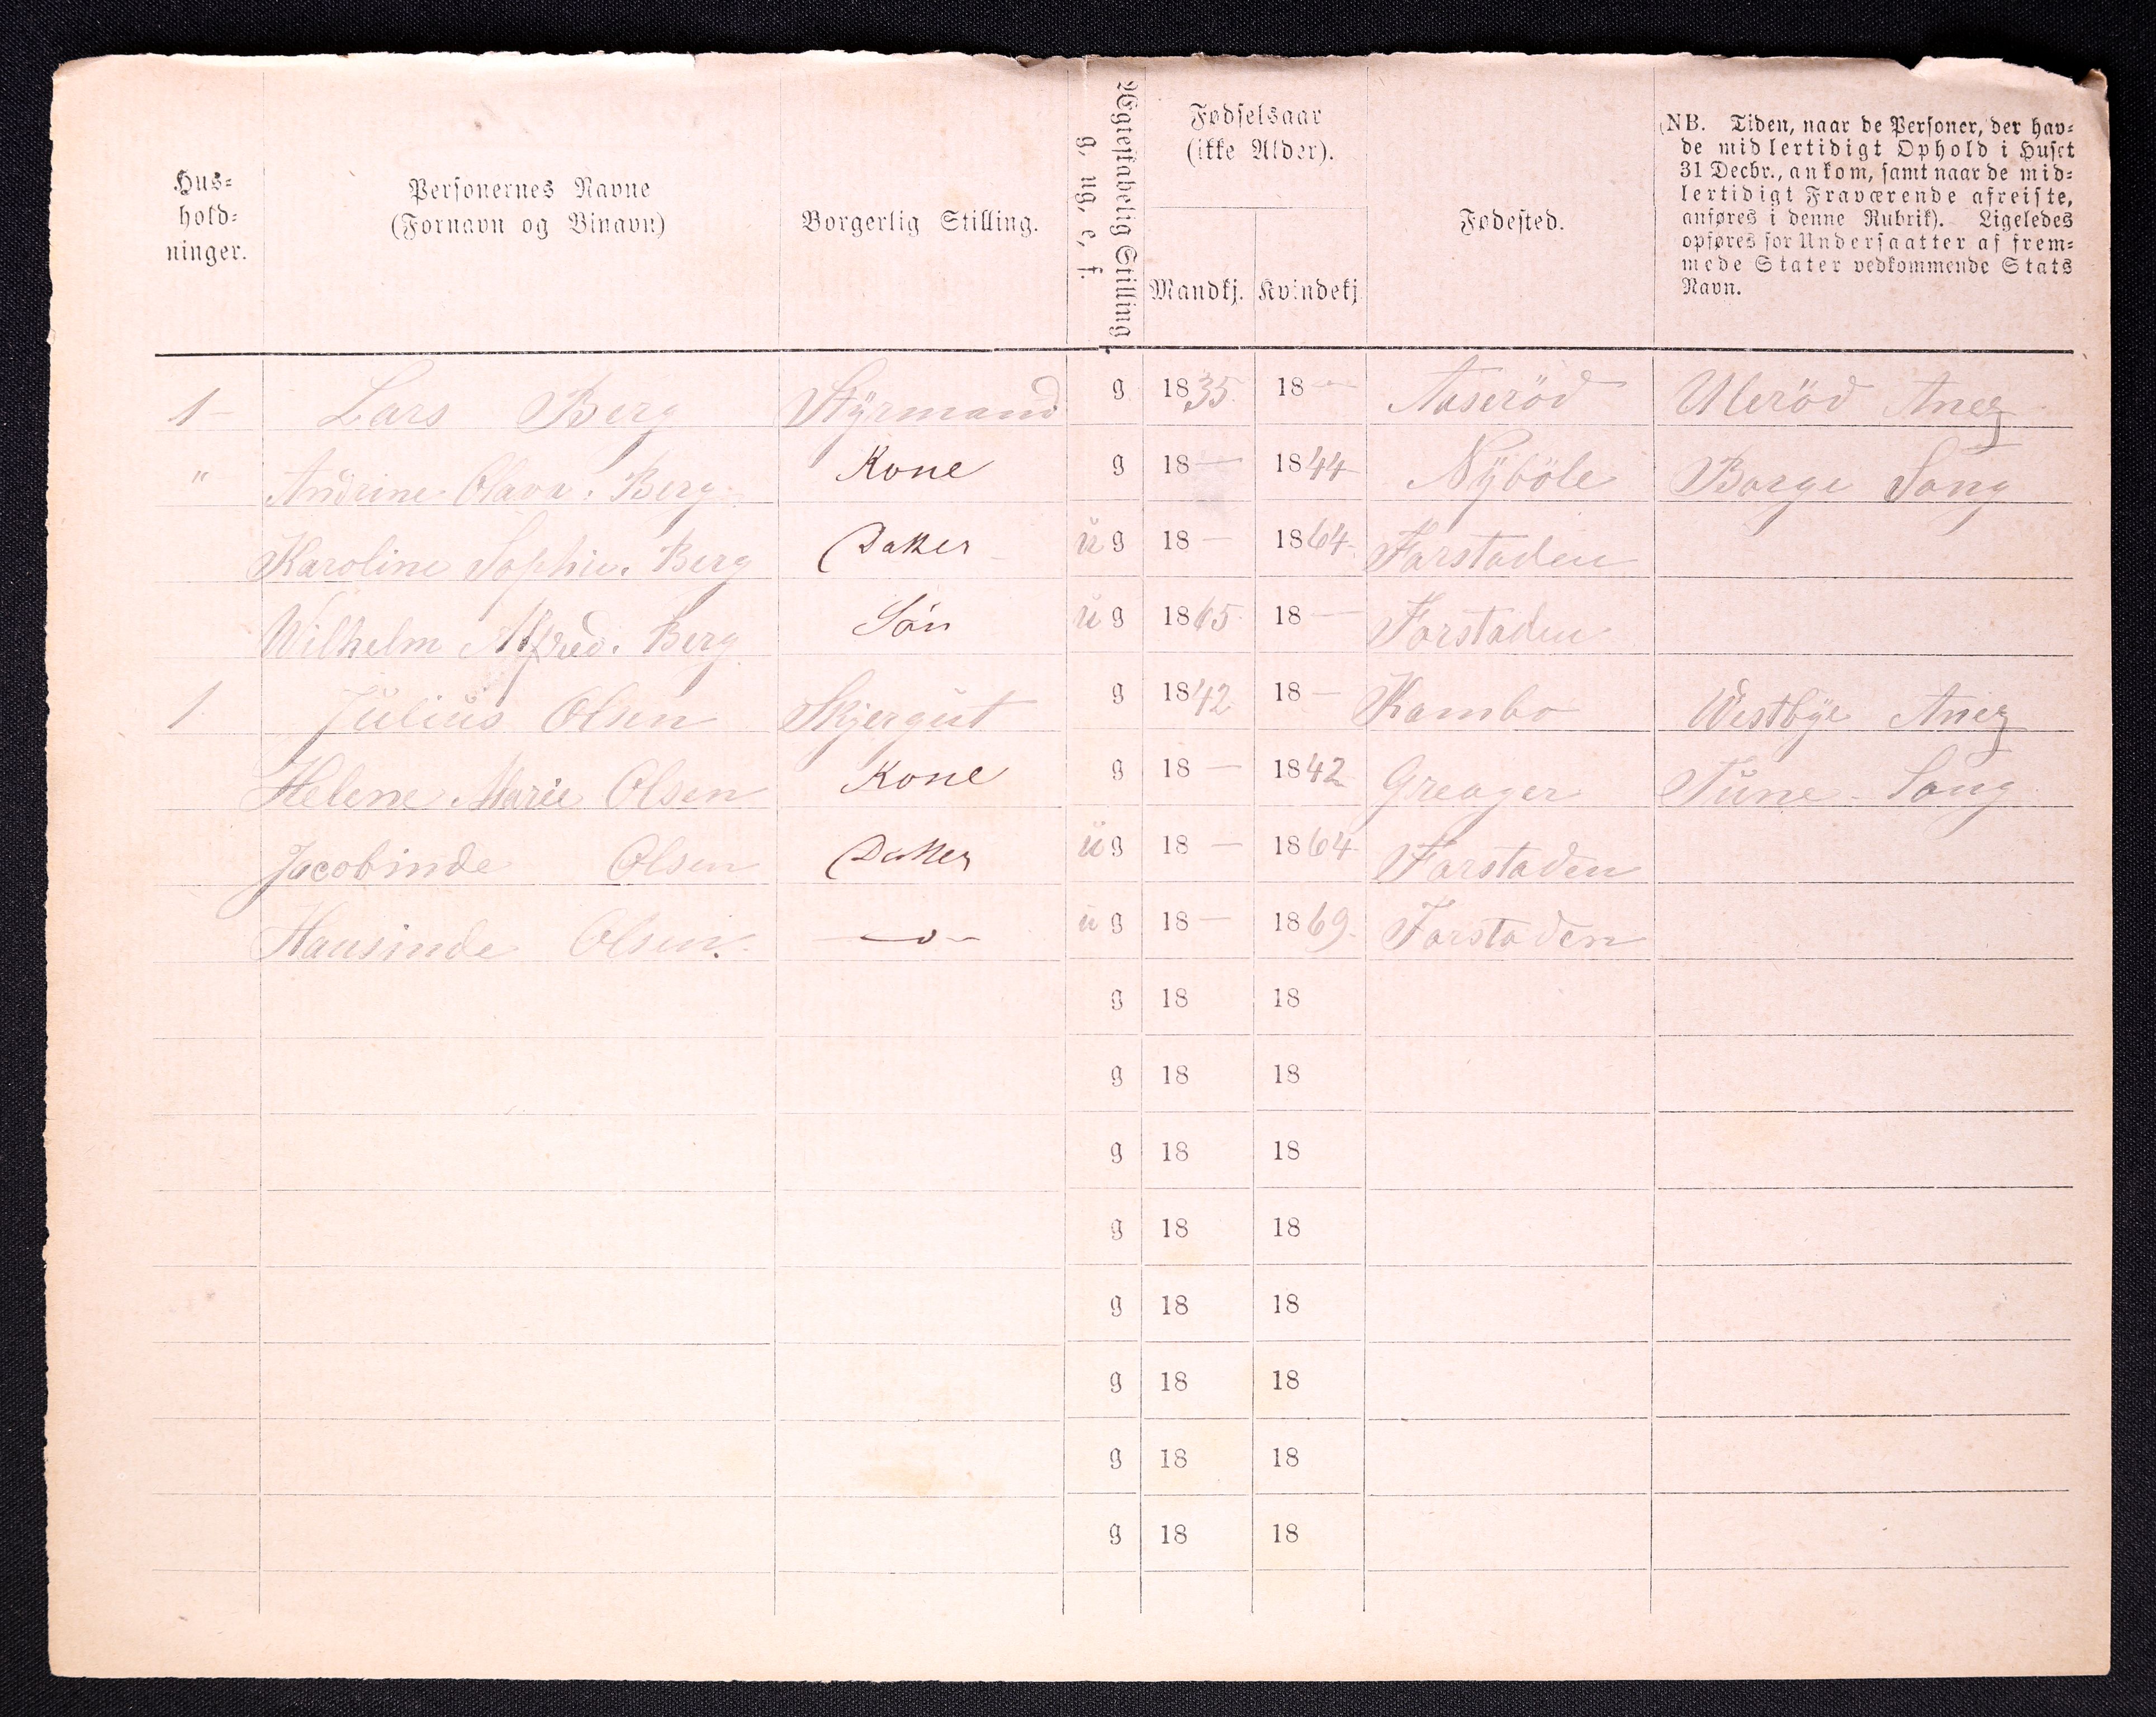 Hus-
hold-
ninger.
Personernes Navne
(Fornavn og Binavn)
Borgerlig Stilling.
Ægteskabelig Stilling
g. ug. e. f.
Fødselsaar
(ikke Alder).
Mandkj. Kvindekj
Fødested.
(NB. Tiden, naar de Personer, der hav-
de midlertidigt Ophold i Huset
31 Decbr., ankom, samt naar de mid-
lertidigt Fraværende afreiste,
anføres i denne Rubrik). Ligeledes
opføres for Undersaatter af frem-
mede Stater vedkommende Stats
Navn.
1 Lars Berg Styrmand g 1835 18 — Aaseröd Ulleröd
" Andrine Olava. Berg. Kone g 18 — 1844 Nyböle Borge
Karoline Sophie. Berg Datter ug 18 — 1864 Forstaden
Wilhelm Alfred. Berg Sön ug 1865 18 — Forstaden
1 Julius Olsen g 1842 18 — Kambo Westbye
Helene Marie Olsen Kone g 18 — 1842 Greager Tune
Jacobinde Olsen Datter ug 18 — 1864 Forstaden
Hansinde Olsen. —o— ug 18 — 1869. Forstaden
g 18 18
g 18 18
g 18 18
g 18 18
g 18 18
g 18 18
g 18 18
g 18 18